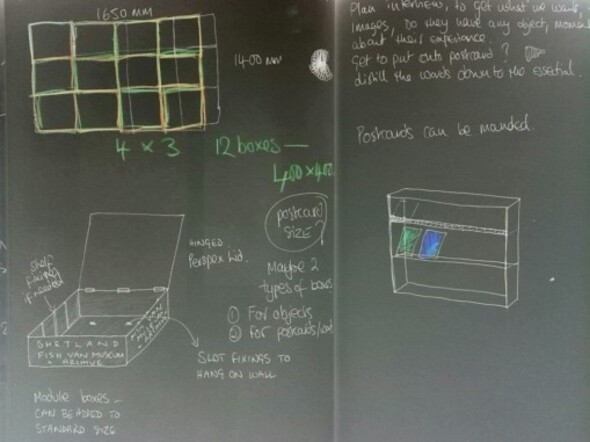 1650 MM
1400 mm
4 x 3 12 boxes —
400 x 400
postcard
SIZE?
HINGED
Perspex lid.
Shelf
fixing
if needed
Maybe 2
types of boxes
① For objects
② For postcards/
SHETLAND
FISH VAN MUSEUM
+ ARCHIVE
SLOT FIXINGS TO
HANG ON WALL
Module boxes —
CAN BE ADDED TO
STANDARD SIZE
Plan interviews, to get what we want,
Images, Do they have any object,
about their experience.
Get to put onto postcard?
distill the words down to the essential.
Postcards can be